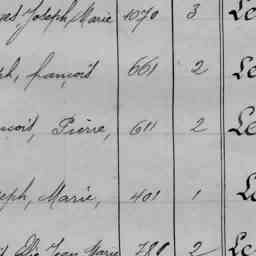 Joseph, Marie 1070 3 Le
ph, françois 661 2 Le
nçois, Pierre, 611 2 Le
seph, Marie, 401 1 Le
Jean Marie 786 2 Le